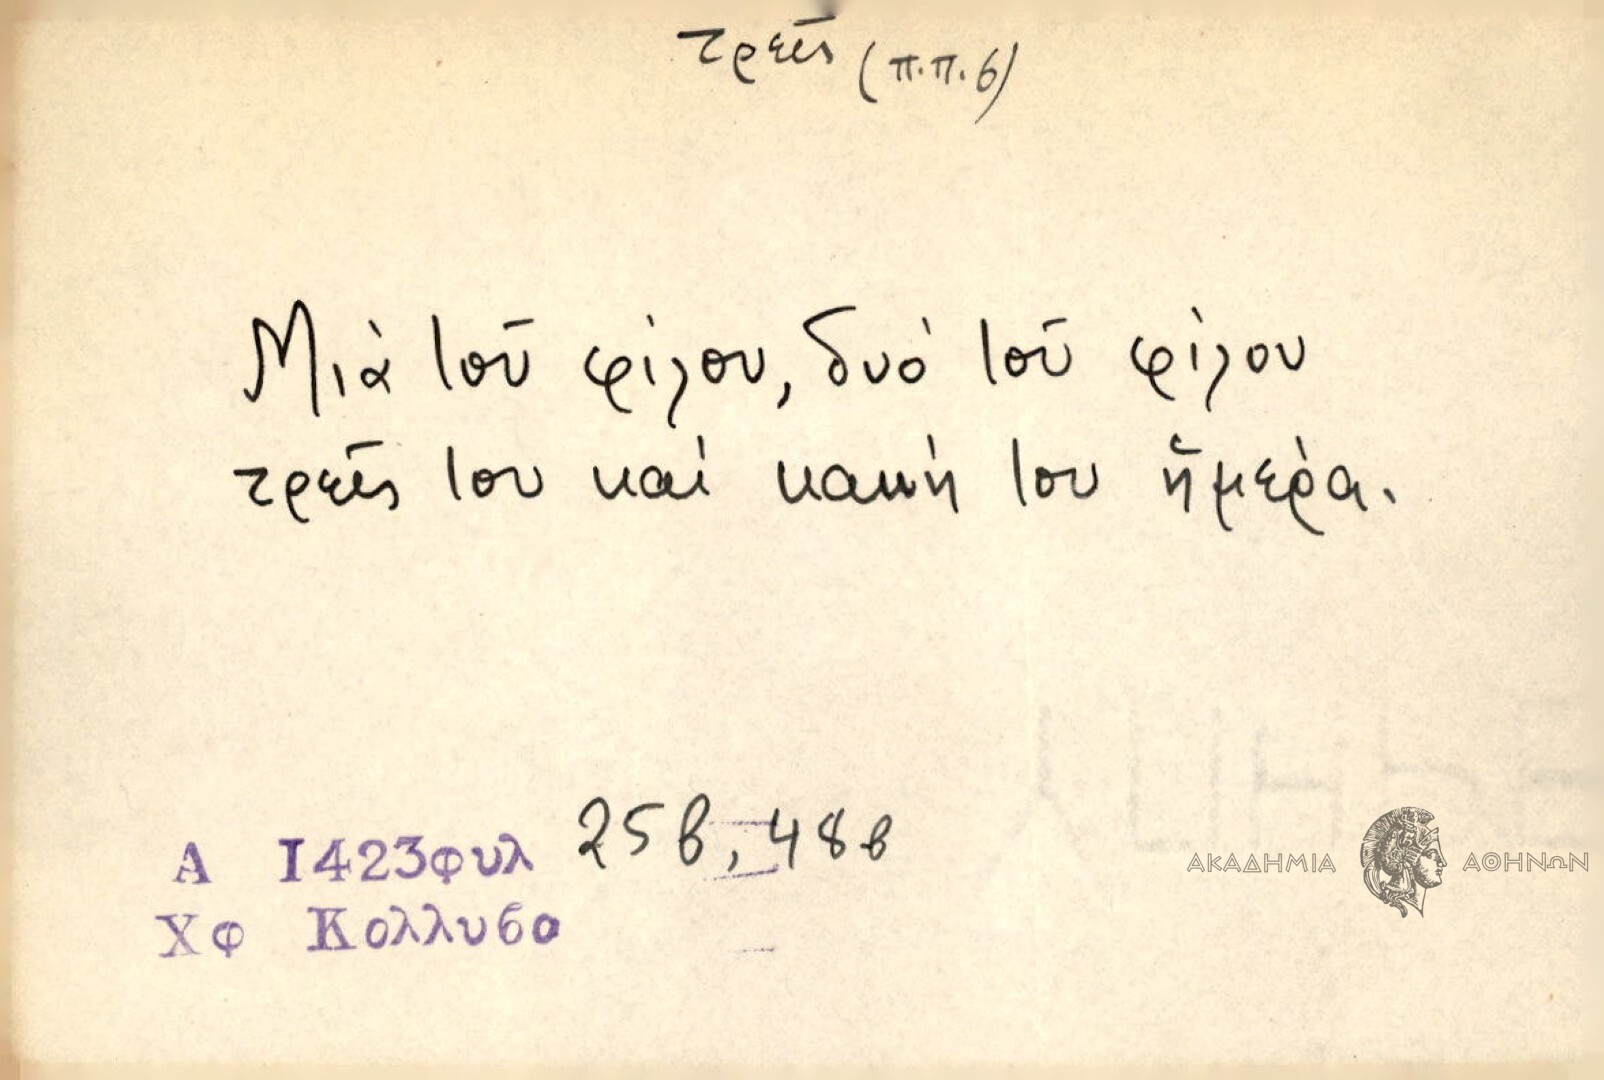 τρεῖς (π.π. 6)
Μιὰ τοῦ φίλου, δυό τοῦ φίλου
τρεῖς του καί κακή του ἥμερα.
Α 1423φυλ 25β, 48β
Χφ Κολλυβα
ΑΚΑΔΗΜΙΑ ΑΘΗΝΩΝ